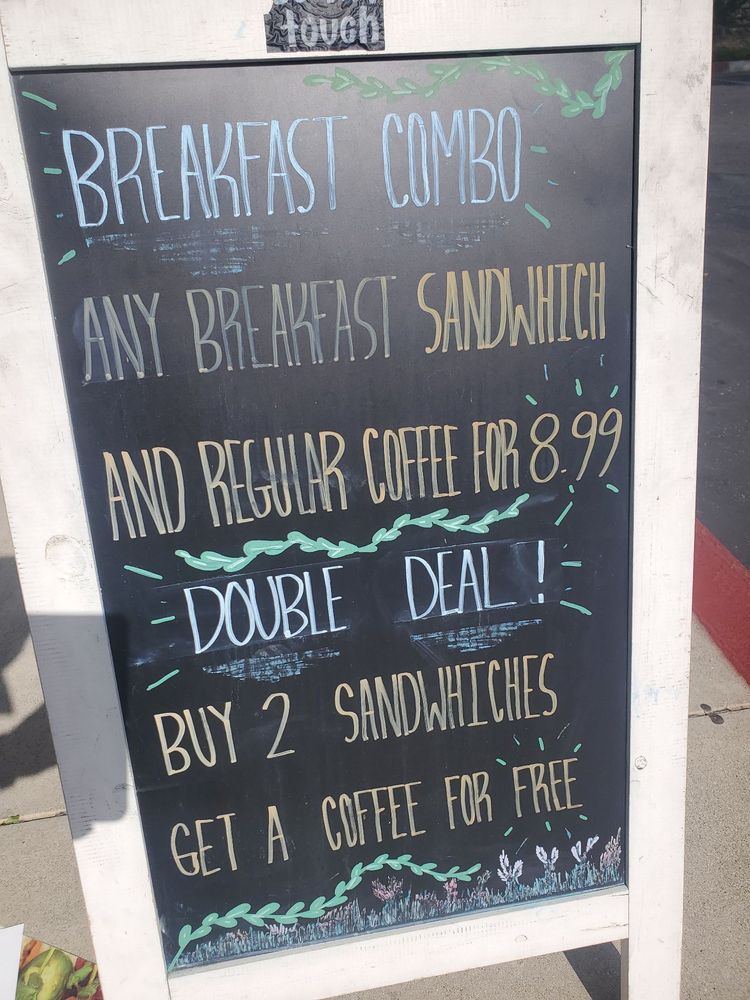 touch
BREAKFAST COMBO
ANY BREAKFAST SANDWHICH
AND REGULAR COFFEE FOR 8.99
DOUBLE DEAL!
BUY 2 SANDWHICHES
GET A COFFEE FOR FREE